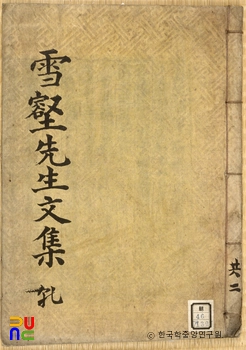 雪壑先生文集 乾
共二
ⓒ 한국학중앙연구원